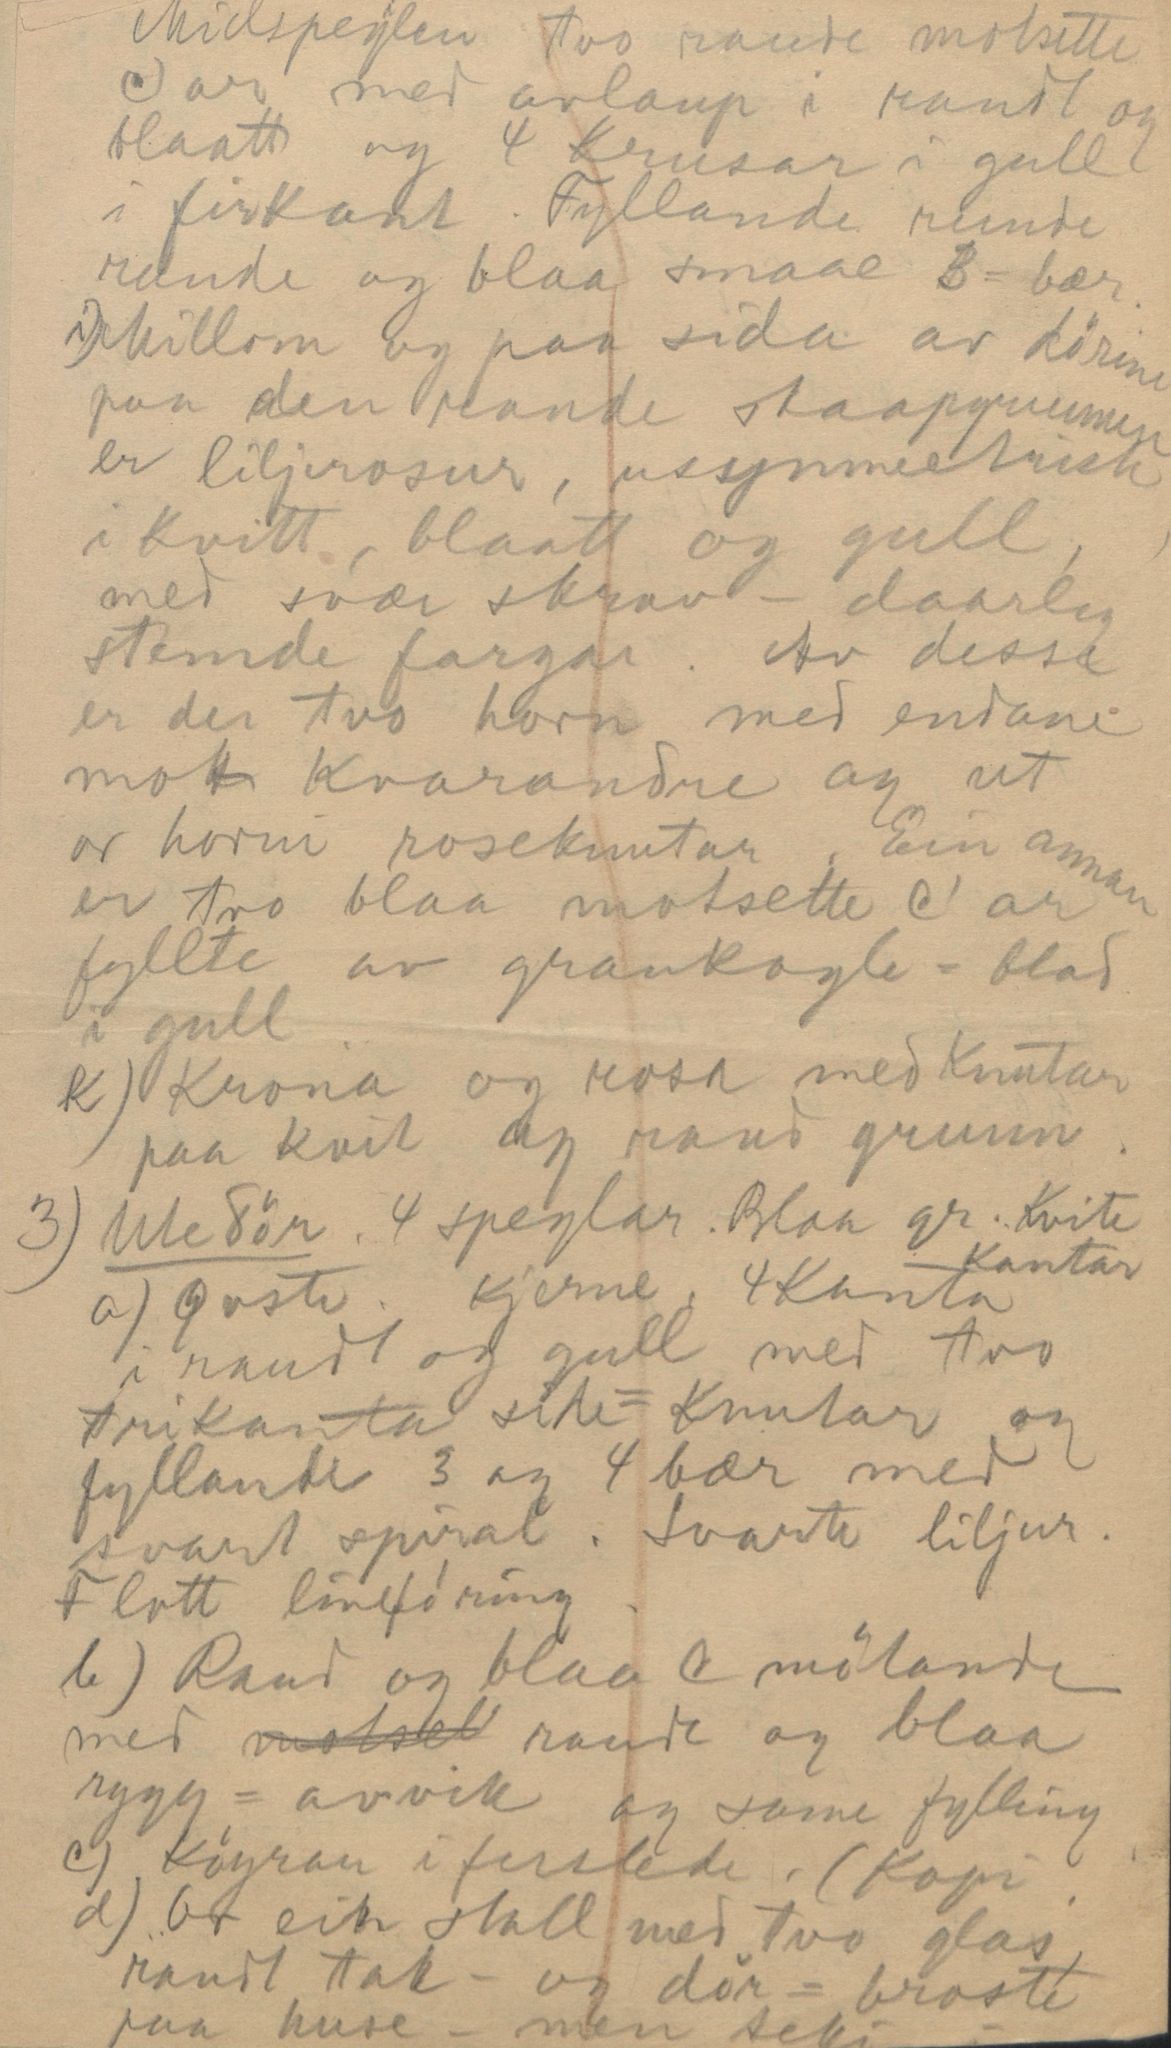 Midspeglen two raude motsette
C) ar med avlaup i raudt og
blaatt og 4 Krusar i gull
i firkant. Fyllande runde
raude og blaa smaae 3 = bær.
i) Millom og paa sida av dörine
paa den raude skaapgrunnen
er liljerosur, ussymmetrisk
i kvitt, blaatt og gull,
med svær skrav - daarleg
stemde fargar. Av desse
er der two horn med endane
mot Kvarandre og ut
or horni roseknutar. Ein annan
er two blaa motsette C' ar
fyllte av grankogle = blad
i gull
k) Krona og rosa med Knutar
paa kvit og raud grunn.
3) Utedör. 4 speglar. Blaa gr. Kvite
Kantar
a) Övste. Kjerne, 4 Kanta
i raudt og gull med tvo
trikanta side = Knutar og
fyllande 3 og 4 bær med
svart spiral. Svarte liljur.
Flott lineföring.
b) Raud og blaa C mötande
med motset raude og blaa
rygg = avvik og same fylling
c) Köyran i ferslede. (Kopi.
d) Or ein stall med two glas,
raudt tak - og dör = broste
paa huse - men